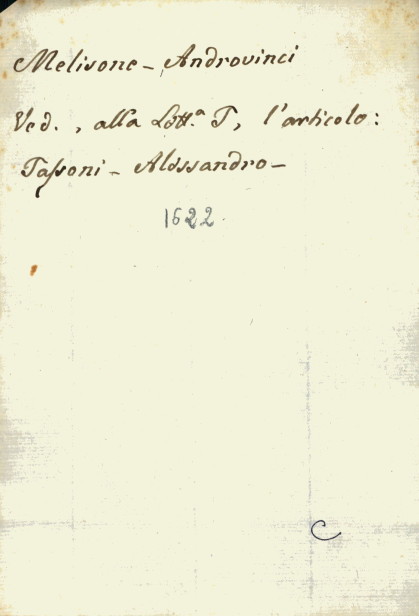 Melisone - Androvinci
Ved., alla Lett.ª T, l'articolo:
Taſsoni - Alessandro -
1622.
C